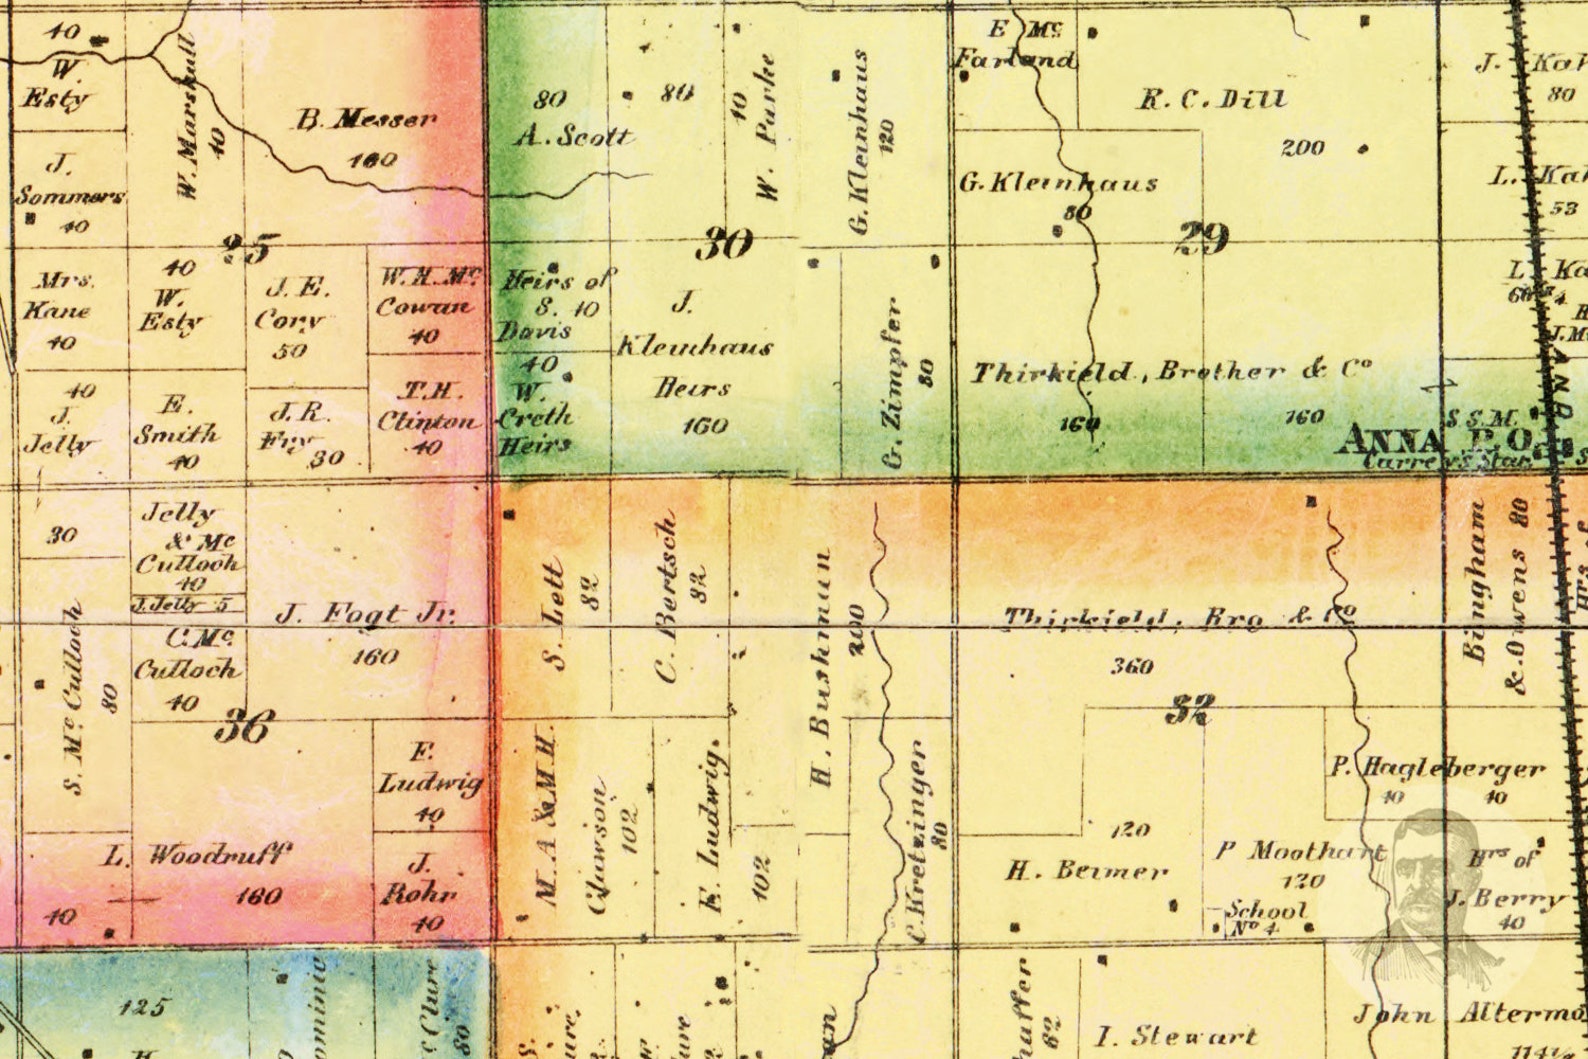 40
W.
Esty
W. Marshall
40
B. Messer
160
J.
Sommers
40
25
Mrs.
Kane
40
40
W.
Esty
J. E.
Cory
50
W. H. Mc
Cowan
40
40
J.
Jelly
E.
Smith
40
J. R.
Fry
30
T. H.
Clinton
40
80
A. Scott
80
40
W. Parke
G. Kleinhaus
120
30
Heirs of
S. 40
Davis
40
W.
Creth
Heirs
J.
Kleinhaus
Heirs
160
G. Zimpfer
80
E Mc
Farland
R. C. Dill
200
G. Kleinhaus
80
29
Thirkield, Brother & Co
160
160
J. Kah
80
L. Kah
53
L Ka
S.S.M.
ANNA P.O.
Carrey's Sta.
30
Jelly
& Mc
Culloch
40
J. Jelly 5
J. Fogt Jr.
160
C. Mc
Culloch
40
S. Mc Culloch
80
36
F.
Ludwig
40
L. Woodruff
160
40
J.
Rohr
40
S. Lett
82
C. Bertsch
82
H. Bushman
200
M. A & M. H.
Clawson
102
F. Ludwig
102
C. Kretzinger
80
Thirkield, Bro & Co
360
32
Bingham
& Owens 80
Hrs of
P. Hagleberger
40
40
120
H. Beimer
P Moothart
120
School
No 4
Hrs of
J. Berry
40
125
ominic
c Clure
80
S.
ure
ure
an
hauffer
82
I. Stewart
John Altermo
114½